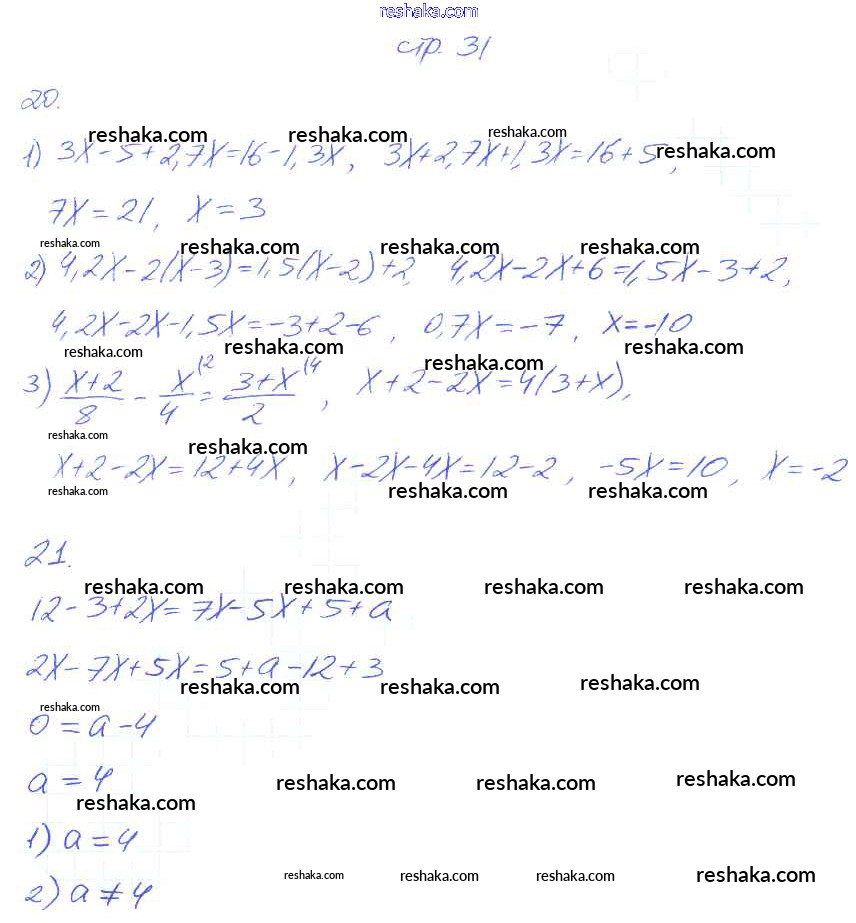 reshaka.com
стр. 31
20.
reshaka.com reshaka.com reshaka.com reshaka.com
1) 3x-5+2,7x=16-1,3x, 3x+2,7x+1,3x=16+5,
7x=21, x=3
reshaka.com reshaka.com reshaka.com reshaka.com
2) 4,2x-2(x-3)=1,5(x-2)+2, 4,2x-2x+6=1,5x-3+2,
4,2x-2x-1,5x=-3+2-6, 0,7x=-7, x=-10
reshaka.com reshaka.com reshaka.com reshaka.com
3) (x+2)/8 - x/4 ⁽² = (3+x)/2 ⁽⁴, x+2-2x=4(3+x),
reshaka.com reshaka.com
x+2-2x=12+4x, x-2x-4x=12-2, -5x=10, x=-2
reshaka.com reshaka.com reshaka.com
21.
reshaka.com reshaka.com reshaka.com reshaka.com
12-3+2x=7x-5x+5+a
2x-7x+5x=5+a-12+3
reshaka.com reshaka.com reshaka.com reshaka.com
0=a-4
a=4
reshaka.com reshaka.com reshaka.com reshaka.com
1) a=4
2) a≠4
reshaka.com reshaka.com reshaka.com reshaka.com